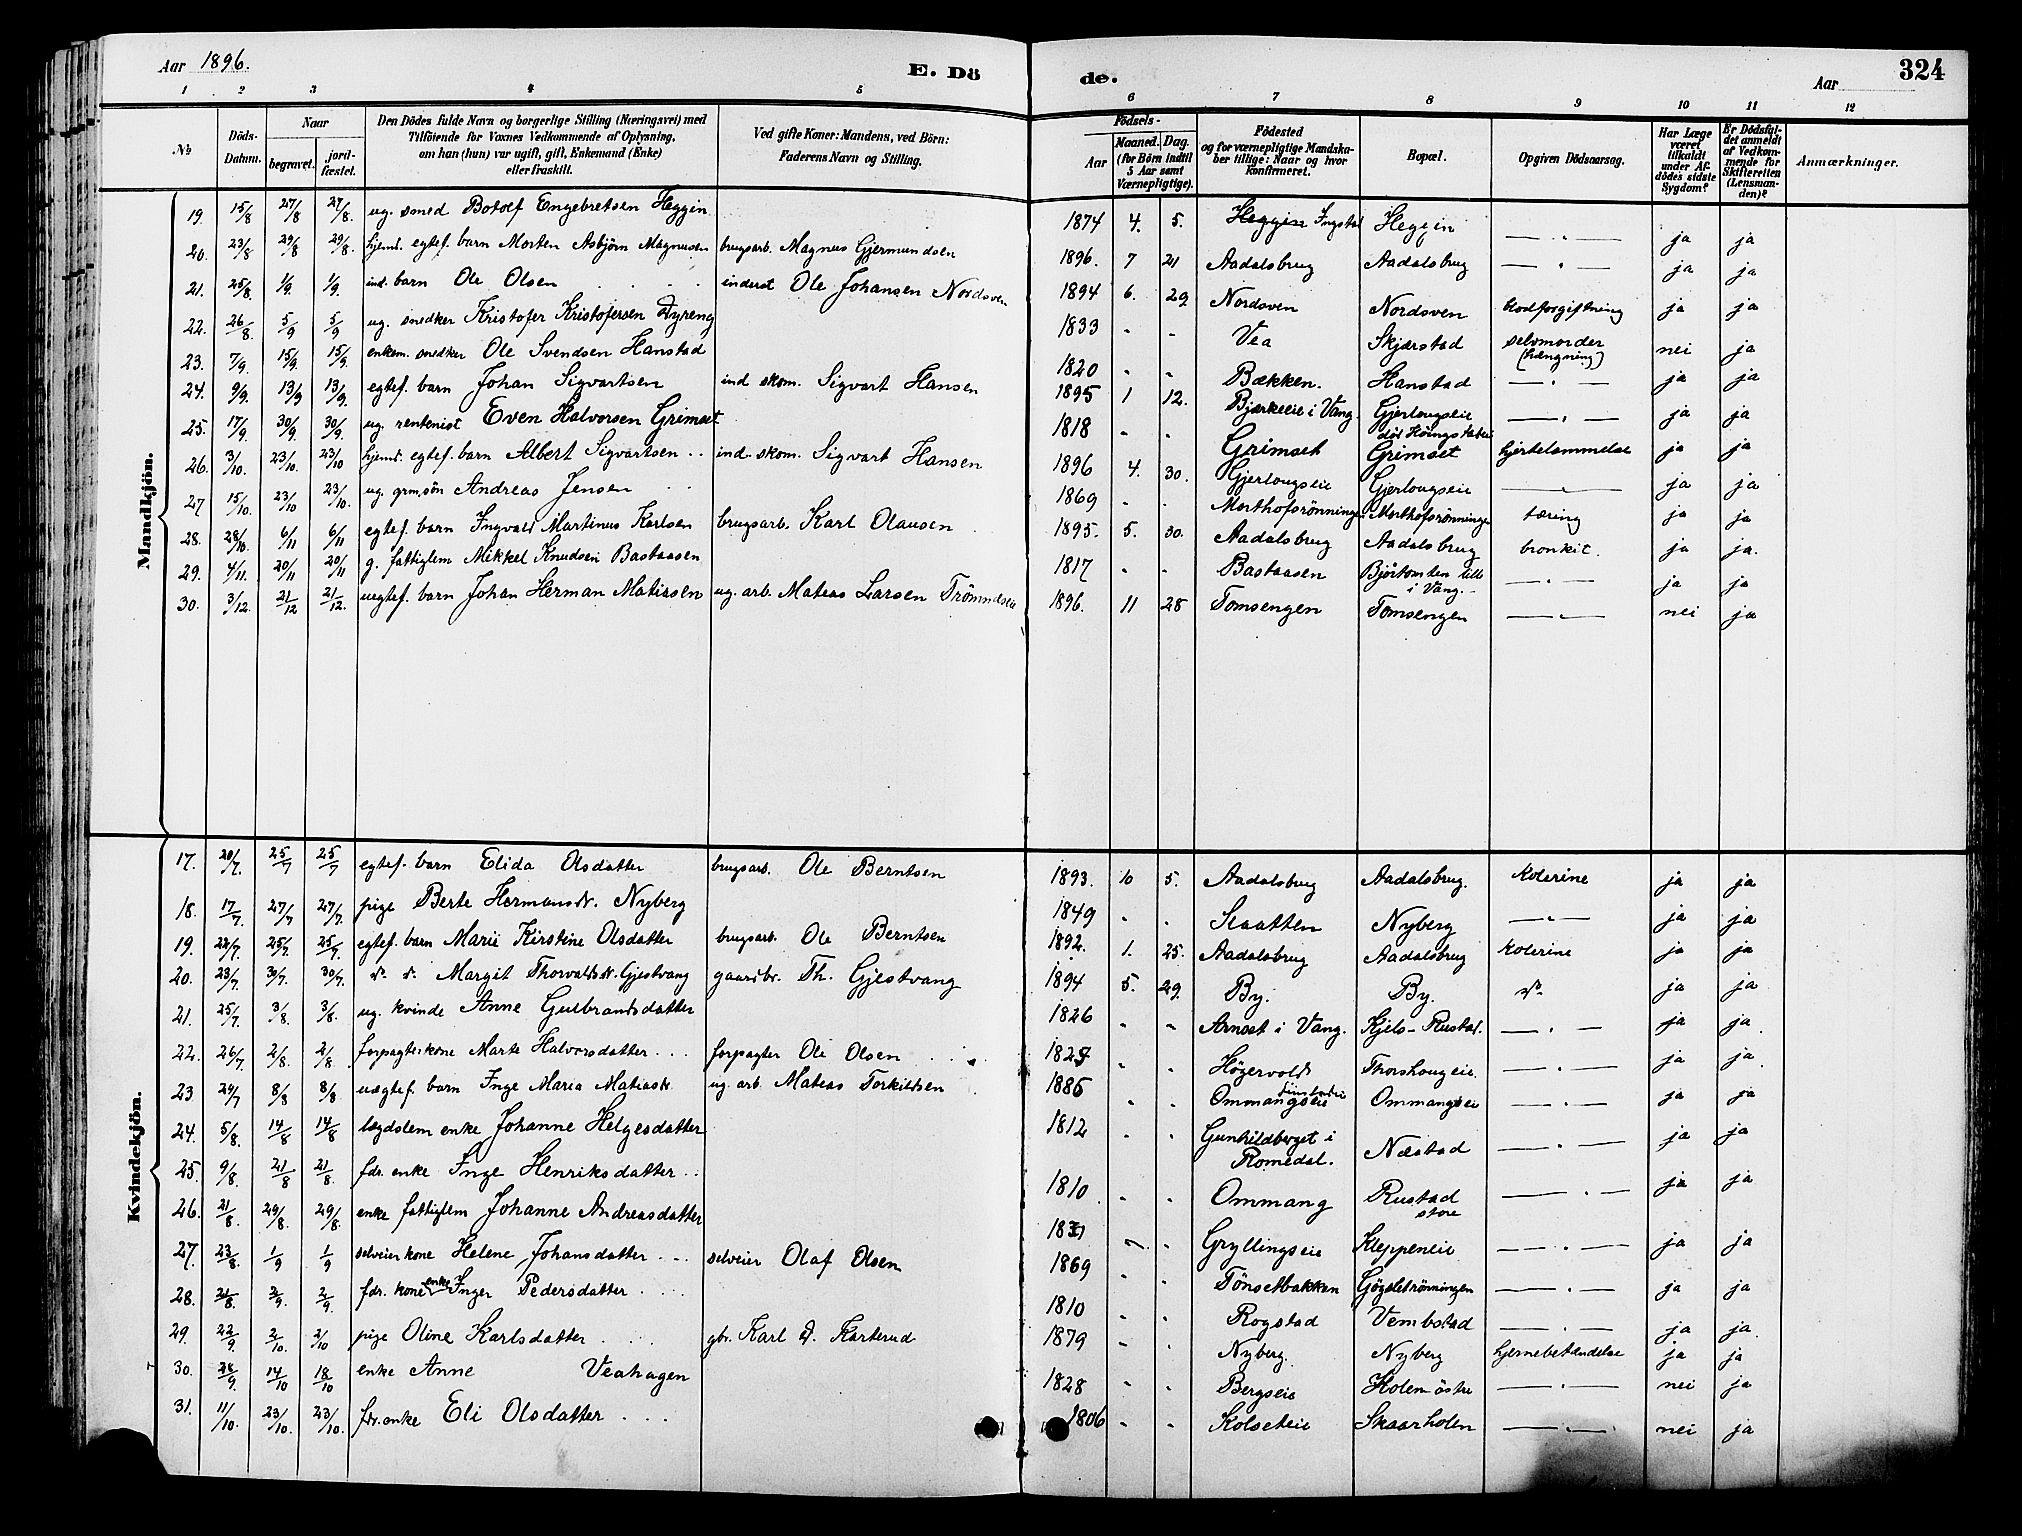 Aar 1896. E. Dö de. Aar 324
1 2 3 4 5 6 7 8 9 10 11 12
№ Döds-Datum. Naar begravet. jordfæstet. Den Dödes fulde Navn og borgerlige Stilling (Næringsvei) med Tilföiende for Voxnes Vedkommende af Oplysning, om han (hun) var ugift, gift, Enkemand (Enke) eller fraskilt. Ved gifte Koner: Mandens, ved Börn: Faderens Navn og Stilling. Födsels- Aar Maaned. Dag. (for Börn indtil 5 Aar samt Værnepligtige). Födested og for værnepligtige Mandskaber tillige: Naar og hvor konfirmeret. Bopæl. Opgiven Dödsaarsag. Har Læge været tilkaldt under Afdödes sidste Sygdom? Er Dödsfaldet anmeldt af Vedkommende for Skifteretten (Lensmanden)? Anmærkninger.
Mandkjön.
19. 15/8 27/8 27/8. ug. smed Botolf Engebretsen Heggin 1874 4. 5. Heggin Ingstad Heggin —„— ja ja
20. 23/8 29/8 29/8. hjemd. egtef. barn Morten Asbjörn Magnusen brugsarb. Magnus Gjermundsen 1896. 7 21 Aadalsbrug Aadalsbrug —„— ja ja
21. 25/8. 1/9. 1/9. ind. barn Ole Olsen inderst Ole Johansen Nordsven 1894 6. 29 Nordsven Nordsven blodforgiftning ja ja
22. 26/8 5/9 5/9 ug. snedker Kristofer Kristofersen Dyreng 1833 „ „ Vea Skjærstad selvmorder (hængning) nei ja
23. 7/9. 15/9. 15/9. enkem. snedker Ole Svendsen Hanstad 1820 „ „ Bækken. Hanstad —„— ja ja
24. 9/9. 13/9 13/9. egtef. barn Johan Sigvartsen ind skom. Sigvart Hansen 1895 1 12. Bjerkeeie i Vang. Gjerlougseie —„— ja ja
25. 17/9. 30/9. 30/9. ug. rentenist Even Halvorsen Grimset 1818 „ „ Grimset Grimset hjertelammelse ja ja
26. 3/10. 23/10. 23/10 hjemd. egtef. barn Albert Sigvartsen ind. skom. Sigvart Hansen 1896 4. 30. Gjerlougseie Gjerlougseie —„— ja ja
27 15/10. 23/10 23/10. ug. grmsön Andreas Jensen 1869 „ „ Morthofsrönningen Morthofsrönningen tæring ja ja
28. 28/10. 6/11 6/11 egtef. barn Ingvald Martinus Karlsen brugsarb. Karl Olausen 1895. 5. 30. Aadalsbrug Aadalsbrug bronkit. ja ja.
29. 4/11. 20/11 20/11 g. fattiglem Mikkel Knudsen Bastaasen 1817 „ „ Bastaasen Bjørtomten lille i Vang. —„— ja ja
30. 3/12. 21/12 21/12. uegtef. barn Johan Herman Matiasen ug. arb. Mateas Larsen 1896. 11 28 Tomsengen Tomsengen —„— nei ja
Kvindekjön.
17. 20/7. 25/7 25/7 egtef. barn Elida Olsdatter brugsarb. Ole Berntsen 1893. 10 5. Aadalsbrug Aadalsbrug. Kolerine ja ja
18. 17/7. 27/7 27/7. pige Berte Hermansdr. Nyberg 1849 „ „ Slaatten Nyberg —„— ja ja
19. 22/7. 25/7. 25/7. egtef. barn Marie Kirstine Olsdatter brugsarb. Ole Berntsen 1892. 1. 25. Aadalsbrug Aadalsbrug Kolerine ja ja
20. 23/7. 30/7. 30/7. do. do. Margit Thorvaldsdr. Gjestvang gaardbr. Th. Gjestvang 1894 5. 29. By. By. do. ja ja
21. 25/7. 3/8. 3/8. ug. kvinde Anne Gulbrandsdatter 1826 „ „ Arnset i Vang. Kjels-Rustad. —„— ja ja.
22. 26/7 2/8. 2/8. forpagterkone Marte Halvorsdatter forpagter Ole Olsen „ „ Högervold Thorshougeie. —„— ja ja
23 8/8 8/8 uægtef. barn Inge Maria Matiasdr. ug. arb. Mateas Torkildsen „ „ Ommangseie Ommangseie —„— ja ja
24. 5/8. 14/8 14/8 lægdslem enke Johanne Helgesdatter 1812 „ „ Gunhildberget i Romedal. Næstad —„— ja ja
25. 9/8. 21/8 21/8. fdr. enke Inge Henriksdatter 1810 „ „ Ommang Rustad store —„— ja ja
26. 21/8. 29/8. 29/8. enke fattiglem Johanne Andreasdatter „ „ Gryllingseie Kleppeneie —„— ja ja
27. 23/8. 1/9 1/9 selveierkone Helene Johansdatter selveier Olaf Olsen 1869 „ „ Tönsetbakken —„— ja ja
28. 2/9. 2/9. fdr. kone enke Inger Pedersdatter 1810 „ „ Rogstad Vembstad —„— ja ja.
29. 22/9. 2/10. 2/10 pige Oline Karlsdatter gbr. Karl D. Karterud 1879 „ „ Nyberg. Nyberg hjernebetændelse ja ja
30. 28/9. 14/10 18/10 enke Anne Veahagen 1828 „ „ Bergseie Holen östre —„— nei ja
31. 11/10. 23/10. 23/10. fdr. enke Eli Olsdatter 1806 „ „ Kolseteie Skaarholen —„— nei ja